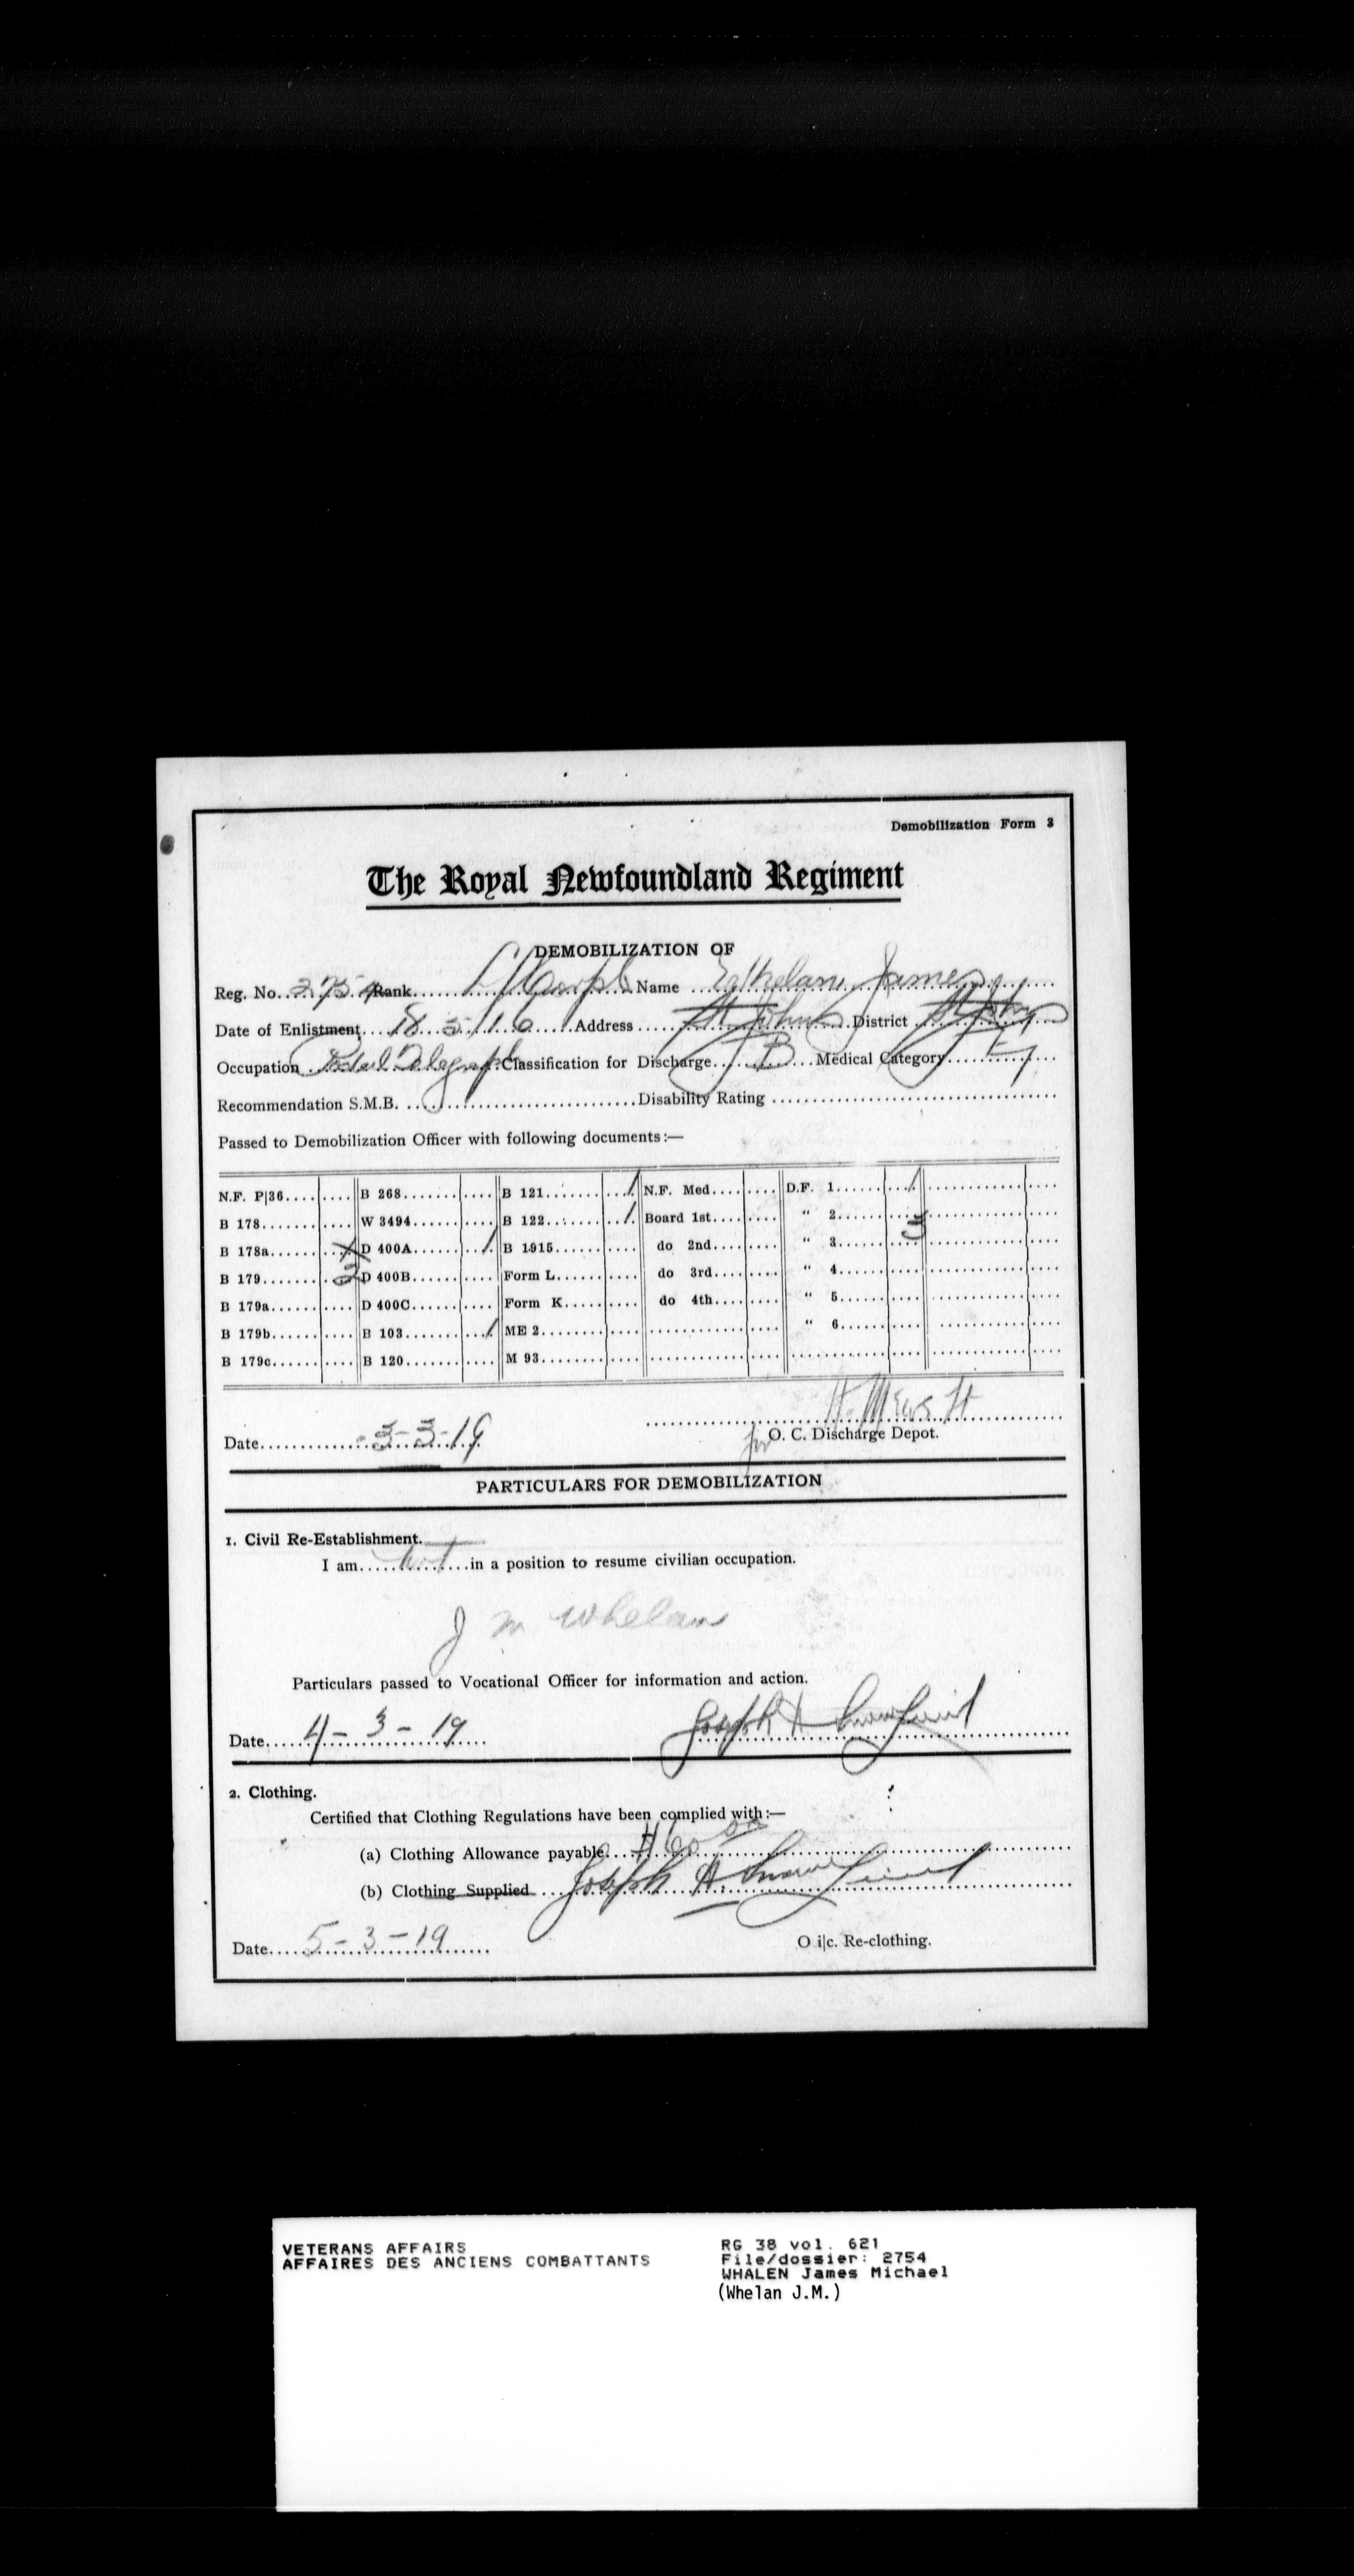 Demobilization Form 3
The Royal Newfoundland Regiment
DEMOBILIZATION OF
Reg. No. 2754 Rank L/Corpl Name Whelan James
Date of Enlistment 18 5 16 Address St Johns District St Johns
Occupation Postal Telegraph Classification for Discharge B Medical Category E
Recommendation S.M.B. Disability Rating
Passed to Demobilization Officer with following documents:—
N.F. P|36 B 268 B 121 1 N.F. Med. D.F. 1 1
B 178 W 3494 B 122 1 Board 1st " 2
B 178a D 400A 1 B 1915 do 2nd " 3 3
B 179 2 D 400B Form L do 3rd " 4
B 179a D 400C Form K do 4th " 5
B 179b B 103 1 ME 2 " 6
B 179c B 120 M 93
H. Mews Lt
Date 3-3-19 for O. C. Discharge Depot.
PARTICULARS FOR DEMOBILIZATION
1. Civil Re-Establishment.
I am not in a position to resume civilian occupation.
J M Whelan
Particulars passed to Vocational Officer for information and action.
Date 4-3-19 Joseph A
2. Clothing.
Certified that Clothing Regulations have been complied with:—
(a) Clothing Allowance payable $60.00
(b) Clothing Supplied Joseph A.
Date 5-3-19 O i|c. Re-clothing.
VETERANS AFFAIRS RG 38 vol. 621
AFFAIRES DES ANCIENS COMBATTANTS File/dossier: 2754
WHALEN James Michael
(Whelan J.M.)